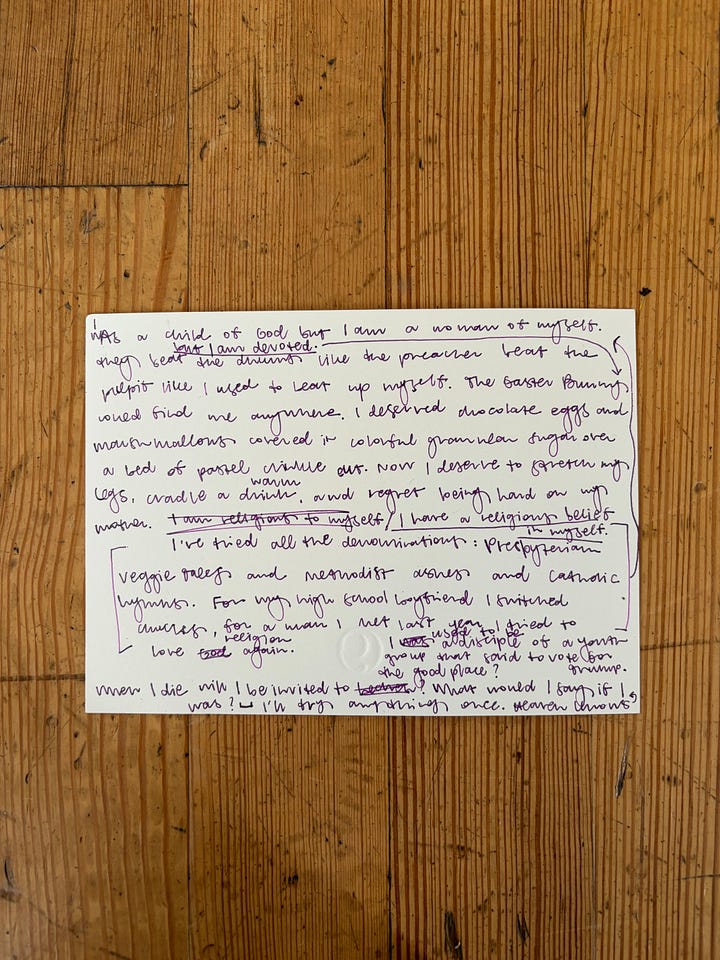 I was a child of God but I am a woman of myself.
but I am devoted.
They beat the drums like the preacher beat the
pulpit like I used to beat up myself. The Easter Bunny
could find me anywhere. I deserved chocolate eggs and
marshmallows covered in colorful granular sugar over
a bed of pastel crinkle cut. Now I deserve to stretch my
warm
legs, cradle a drink, and regret being hard on my
mother. I am religious to myself / I have a religious belief
in myself.
I've tried all the denominations: Presbyterian
veggie tales and methodist ashes and catholic
hymns. For my high school boyfriend I switched
churches, for a man I met last year I tried to
love God religion again.
I was used to be a disciple of a youth
group that said to vote for
Trump.
the good place?
When I die will I be invited to heaven? What would I say if I
was? I'll try anything once. Heaven knows